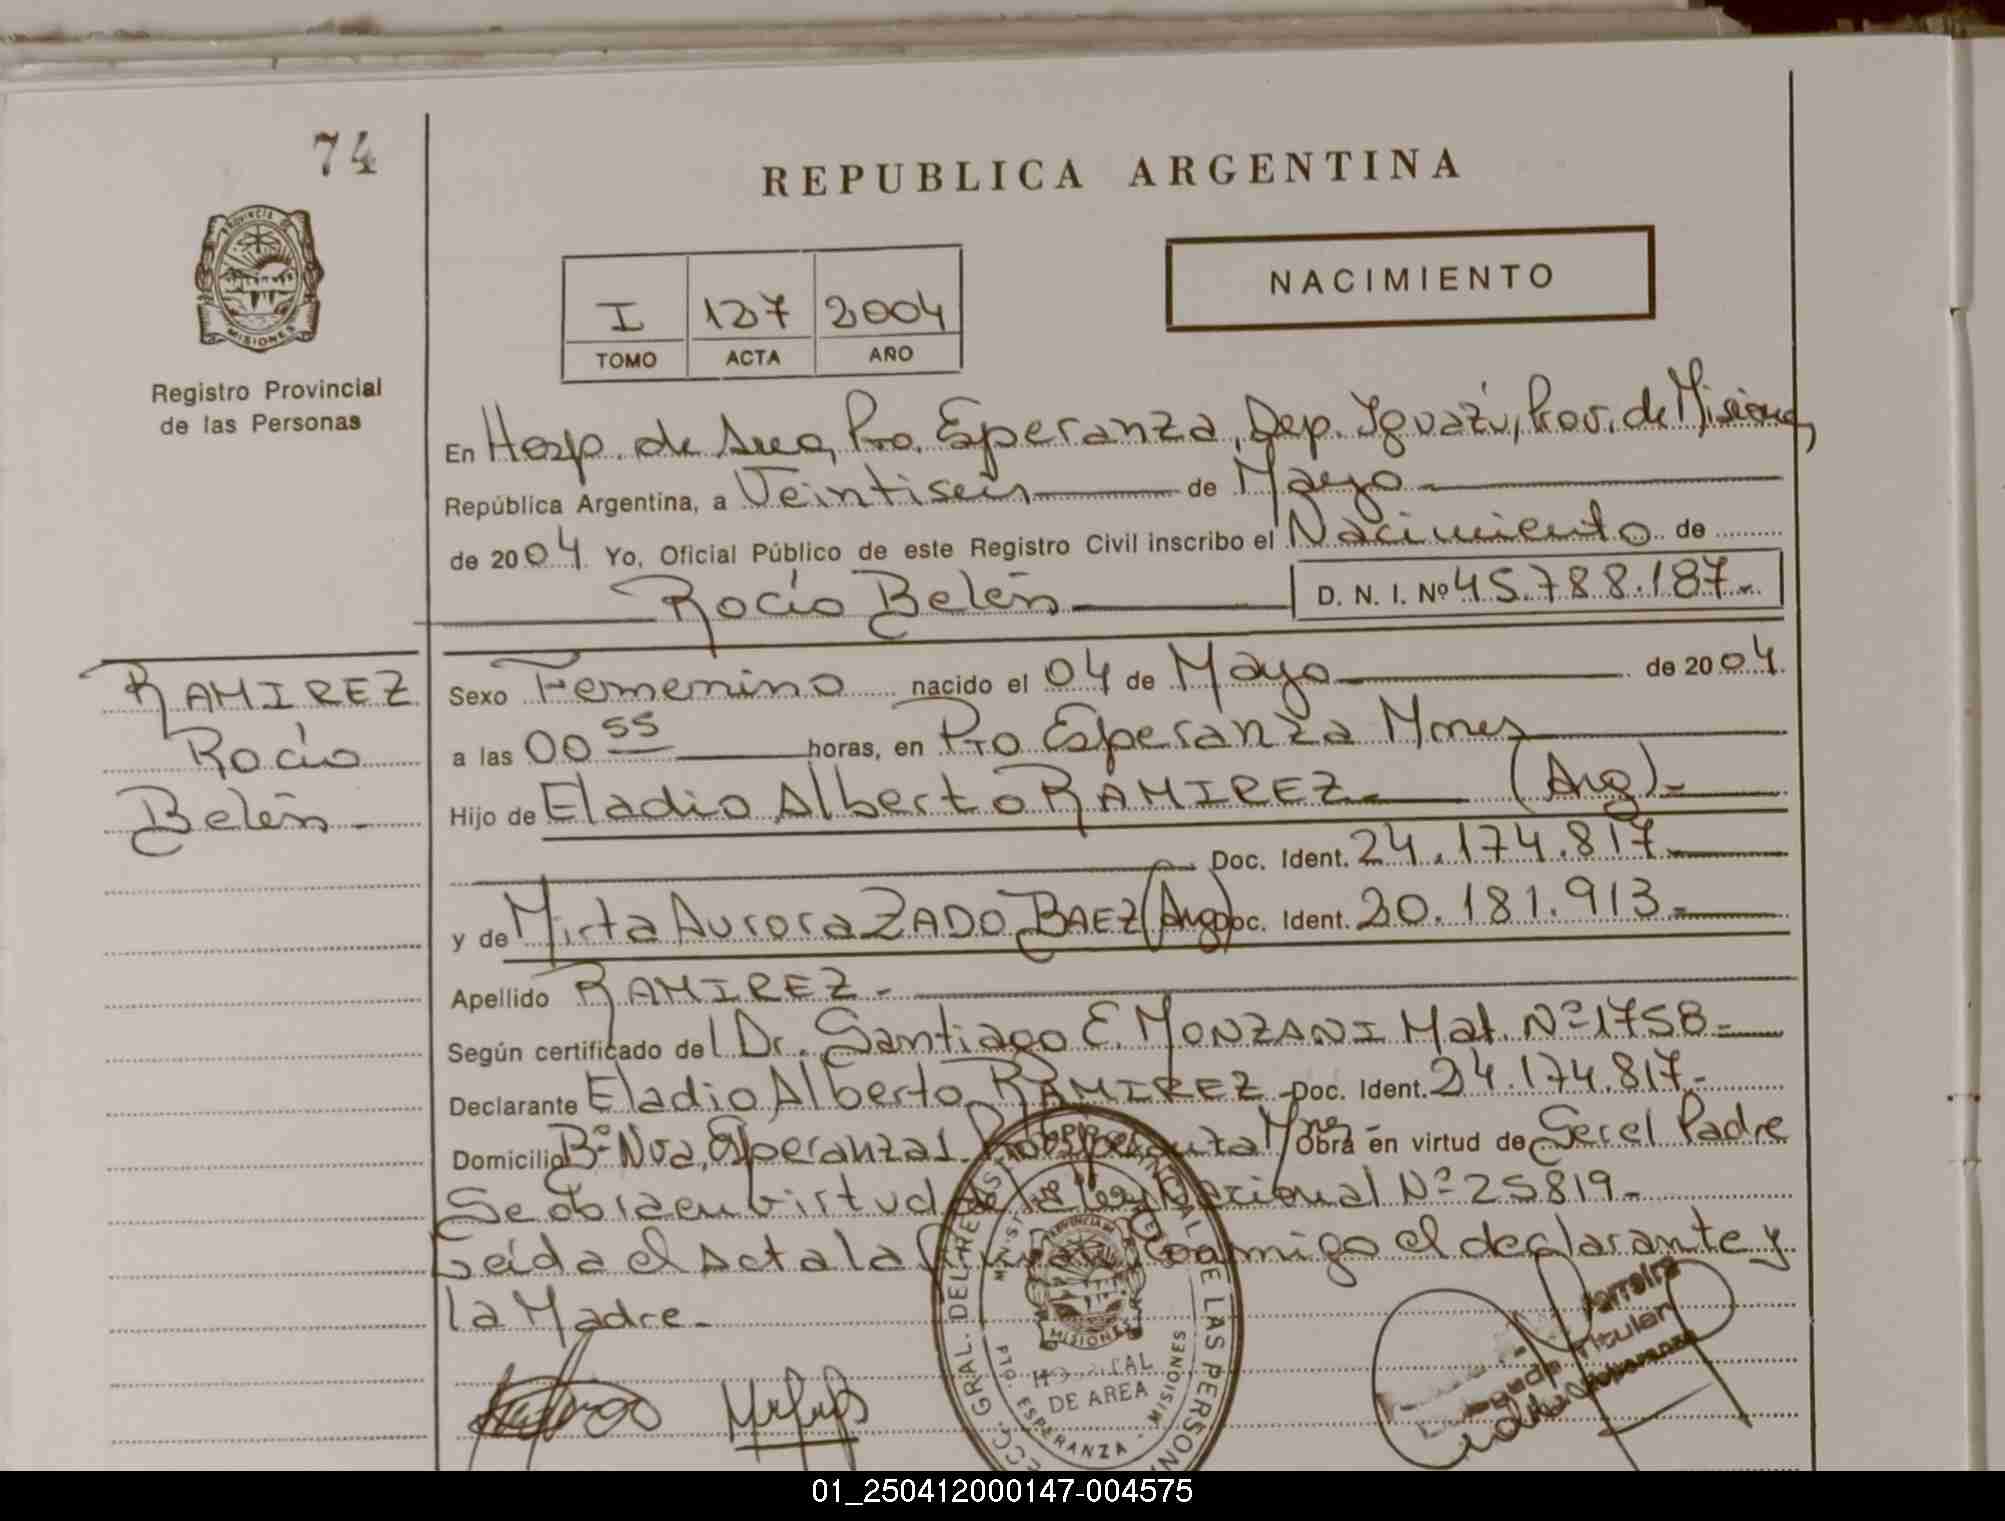 74
REPUBLICA ARGENTINA
PROVINCIA DE
MISIONES
Registro Provincial
de las Personas
I 127 2004
TOMO ACTA AÑO
NACIMIENTO
En Hosp. de Area, Pto. Esperanza, Dep. Iguazú, Prov. de Misiones,
República Argentina, a Veintiseis de Mayo
de 2004 Yo, Oficial Público de este Registro Civil inscribo el Nacimiento de
Rocío Belén D. N. I. Nº 45.788.187.-
RAMIREZ
Rocío
Belén -
Sexo Femenino nacido el 04 de Mayo de 2004
a las 00 55 horas, en Pto Esperanza Mnes
Hijo de Eladio Alberto RAMIREZ.- (Arg).-
Doc. Ident. 24.174.817.-
y de Mirta Aurora ZADO BAEZ (Arg) Doc. Ident. 30.181.913.-
Apellido RAMIREZ.-
Según certificado del Dr. Santiago E. MONZANI Mat. Nº 1758.-
Declarante Eladio Alberto RAMIREZ - Doc. Ident. 24.174.817.-
Domicilio Bº Nva. Esperanza Mnes Obra en virtud de Ser el Padre
Se obra en virtud de la Ley Nacional Nº 25819.-
Leída el Acta la conmigo el declarante y
la Madre.-
GRAL. DEL REGISTRO PROVINCIAL DE LAS PERSON
PROVINCIA DE
MISIONES
HOSPITAL
DE AREA
PTO. ESPERANZA - MISIONES
Ferreira
Titular
Esperanza
01_250412000147-004575